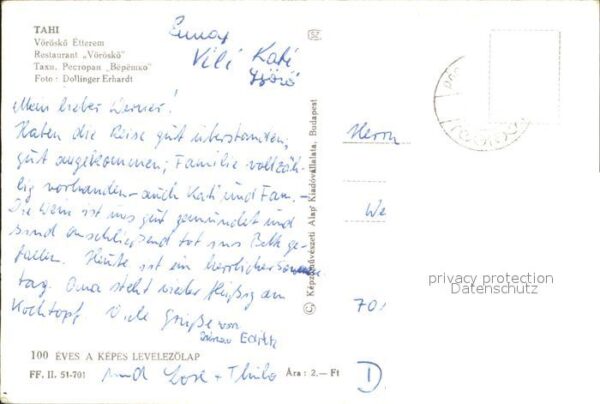 TAHI
Vöröskő Étterem
Restaurant „Vöröskő"
Тахи, Ресторан „Вёрёшкё"
Foto: Dollinger Erhardt
Vili Kati
Mein lieber Werner!
Haben die Reise gut überstanden,
gut angekommen; Familie vollzäh-
lig vorhanden – auch Kati und Fam. –
Die Wein ist uns gut gemundet und
sind anschließend tot ins Bett ge-
fallen. Heute ist ein herrlicher Sonnen
tag. Oma steht wieder fleißig am
Kochtopf. Viele Grüße von
Edith
und Lose + Thilo
100 ÉVES A KÉPES LEVELEZŐLAP
FF. II. 51-701
Ára: 2,— Ft
© Képzőművészeti Alap Kiadóvállalata, Budapest
SZ
Herrn
We
70
D
privacy protection
Datenschutz